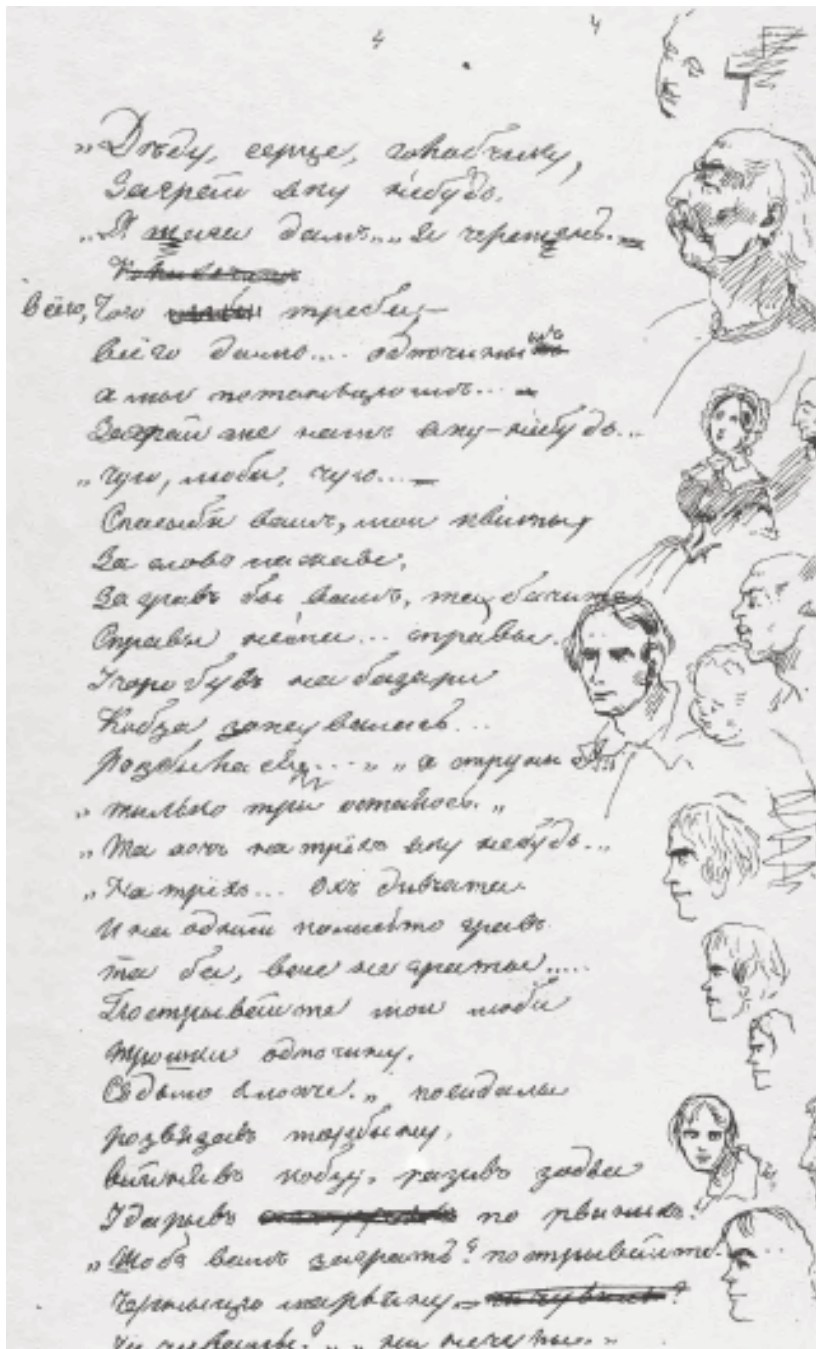 4 4
„Диду, серце, голюбчику,
Заграй яку небудь.
„Я шага дамъ.„ „Я черешень. —
всёго, Чого треба, —
всёго дамо.... одпочиньте
а мы потанцюємъ... —
Заграй же намъ яку-небудь...
„Чую, люби, чую... —
Спасыби вамъ, мои квиты
За слово ласкаве.
Загравъ бы вамъ, та, бачите,
Справы нема... справы.
Учора бувъ на базари
Кобза зопсувалась...
Розбылася...„ „а струны є
„тилько три осталось.„
„Та хочъ на трёхъ яку небудь...
„На трёхъ... Охъ дивчата
И на одній колись-то гравъ
та ба, вже не граты.....
Постривайте мои люби
трошки одпочину.
Сядьмо хлопче.„ посидалы
розвязавъ торбыну,
вийнявъ кобзу, разивъ зодва
Ударывъ по рваныхъ.
„Щобъ вамъ заграть? постривайте...
Черныцю марьяну —
Чи чувалы?„